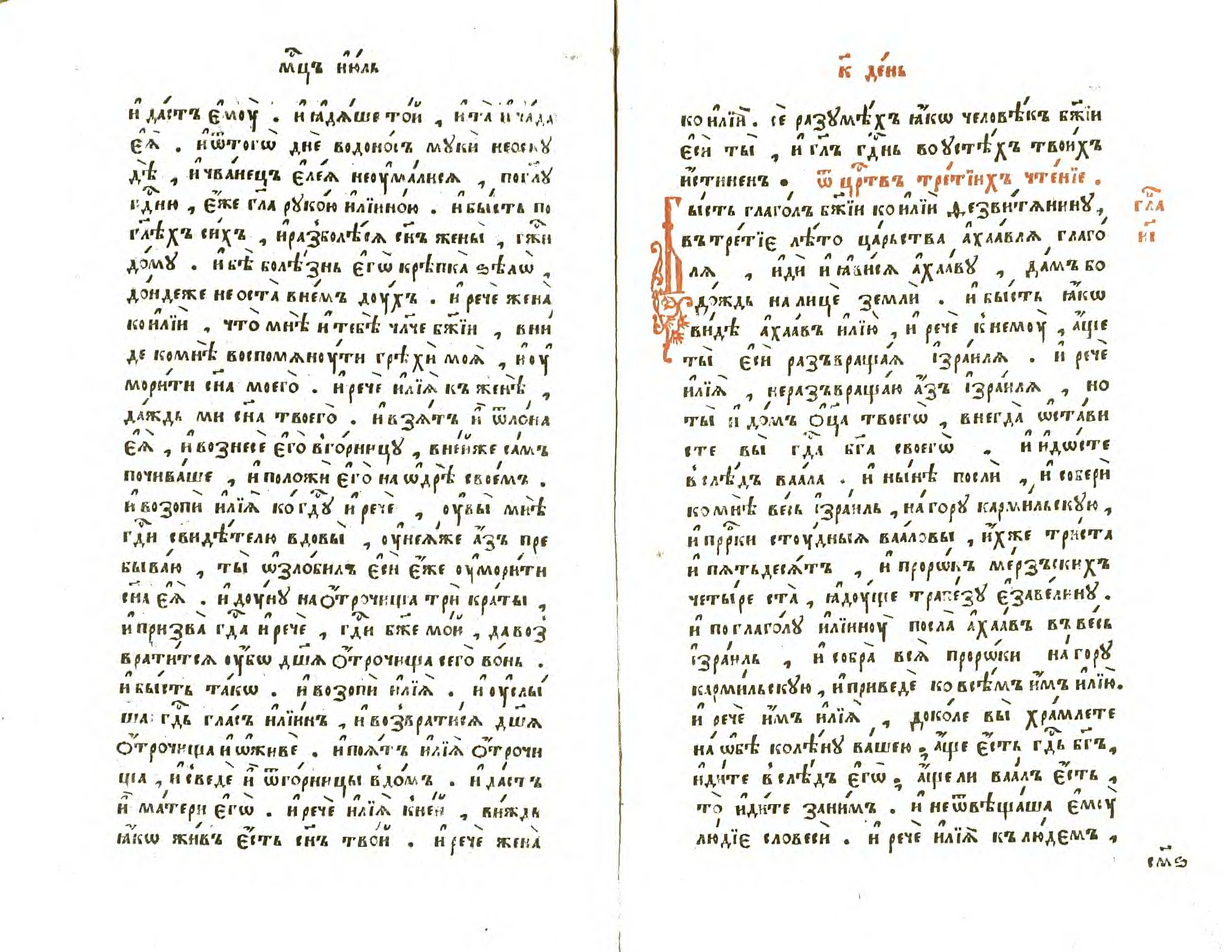 мⷭ҇цъ і҆ю́ль
и҆ да́стъ є҆моу̀ . и҆ ꙗ҆дѧ́ше то́й , и҆ та̀ и҆ ча̑да
є҆ѧ̀ . и҆ ѿтогѡ̀ днѐ водоно́съ мꙋкѝ неѡскꙋ
дѣ̀ , и҆ чва́нецъ є҆ле́ѧ неоумали́сѧ , по глꙋ̀
гдⷭ҇ню , є҆́же гл҃а рꙋко́ю и҆лїи́ною . и҆ бы́сть по
гл҃ѣхъ си́хъ , и҆ разболѣ́сѧ сн҃ъ жены̀ , гжⷭ҇и
до́мꙋ . и҆ бѣ̀ болѣ́знь є҆гѡ̀ крѣпка̀ ѕѣлѡ̀ ,
до́ндеже не оста̀ в не́мъ дꙋ́хъ . и҆ речѐ жена̀
ко и҆лїѝ , что̀ мнѣ̀ и҆ тебѣ̀ чл҃че бж҃їи , вни́
де ко мнѣ̀ воспомѧноу́ти грѣхѝ моѧ̀ , и҆ оу
мори́ти сн҃а моего̀ . и҆ речѐ и҆лїѧ̀ къ женѣ̀ ,
да́ждь ми сн҃а твоего̀ . и҆ взѧ́тъ и҆̀ ѿ ло́на
є҆ѧ̀ , и҆ вознесѐ є҆го̀ в го́рницꙋ , в не́йже са́мъ
почива́ше , и҆ положѝ є҆го̀ на ѡ҆дрѣ̀ свое́мъ .
и҆ возопѝ и҆лїѧ̀ ко гдⷭ҇ꙋ и҆ речѐ , оу҆вы̀ мнѣ̀
гдⷭ҇и свидѣ́телю вдовы̀ , оу҆ неѧ́же а҆́зъ пре
быва́ю , ты̀ ѡ҆ѕло́билъ є҆сѝ є҆́же оу҆мори́ти
сн҃а є҆ѧ̀ . и҆ дꙋ́нꙋ на ѻ҆́трочища трѝ кра́ты ,
и҆ призва̀ гдⷭ҇а и҆ речѐ , гдⷭ҇и бж҃е мо́й , да воз
врати́тсѧ оу҆́бѡ дш҃а ѻ҆́трочища сего̀ во́нь .
и҆ бы́сть та́кѡ . и҆ возопѝ и҆лїѧ̀ . и҆ оу҆слы́
ша гдⷭ҇ь гла́съ и҆лїи́нъ , и҆ возврати́сѧ дш҃а
ѻ҆́трочища и҆ ѡ҆живѐ . и҆ поѧ́тъ и҆лїѧ̀ ѻ҆́трочи
ща , и҆ сведѐ и҆̀ ѿ го́рницы в до́мъ . и҆ да́стъ
и҆̀ ма́тери є҆гѡ̀ . и҆ речѐ и҆лїѧ̀ к не́й , ви́ждь
ꙗ҆́кѡ жи́въ є҆́сть сн҃ъ тво́й . и҆ речѐ жена̀
к҃ де́нь
ко и҆лїѝ . сѐ разꙋмѣ́хъ ꙗ҆́кѡ человѣ́къ бж҃їи
є҆сѝ ты̀ , и҆ гл҃ъ гдⷭ҇нь во оустѣ́хъ твои́хъ
и҆́стиненъ . ѿ црⷭ҇твъ тре́тїихъ чте́нїе .
гл҃а
и҃і
Бы́сть глаго́лъ бж҃їи ко и҆лїѝ ѳезвитѧ́нинꙋ ,
въ тре́тїе лѣ́то ца́рьства а҆хаа́влѧ глаго́
лѧ , и҆дѝ и҆ ꙗ҆ви́сѧ а҆хаа́вꙋ , да́мъ бо
до́ждь на лицѐ землѝ . и҆ бы́сть ꙗ҆́кѡ
ви́дѣ а҆хаа́въ и҆лїю̀ , и҆ речѐ к немоу̀ , а҆́ще
ты̀ є҆сѝ разъвраща́ѧ і҆зра́илѧ . и҆ речѐ
и҆лїѧ̀ , не разъвраща́ю а҆́зъ і҆зра́илѧ , но
ты̀ и҆ до́мъ ѻ҆ц҃а̀ твоегѡ̀ , внегда̀ ѡ҆ста́ви
сте вы̀ гдⷭ҇а бг҃а своегѡ̀ . и҆ и҆до́сте
в слѣ́дъ ваа́ла . и҆ ны́нѣ послѝ , и҆ соберѝ
ко мнѣ̀ ве́сь і҆зра́иль , на горꙋ̀ карми́льскꙋю ,
и҆ прⷪ҇рки стоу́дныѧ ваа́ловы , и҆́хже три́ста
и҆ пѧтьдесѧ́тъ , и҆ проро̑къ ме́рзъскихъ
четы́ре ста̀ , ꙗ҆доу́ще трапе́зꙋ є҆заве́линꙋ .
и҆ по глаго́лꙋ и҆лїи́ноу посла̀ а҆хаа́въ въ ве́сь
і҆зра́иль , и҆ собра̀ всѧ̀ проро́ки на горꙋ̀
карми́льскꙋю , и҆ приведѐ ко всѣ́мъ и҆́мъ и҆лїю̀ .
и҆ речѐ и҆́мъ и҆лїѧ̀ , доко́ле вы̀ хра́млете
на ѻ҆́бѣ колѣ́нꙋ ва́шею , а҆́ще є҆́сть гдⷭ҇ь бг҃ъ ,
и҆ди́те в слѣ́дъ є҆гѡ̀ , а҆́ще ли ваа́лъ є҆́сть ,
то̀ и҆ди́те за ни́мъ . и҆ не ѿвѣща́ша є҆моу̀
лю́дїе словесѝ . и҆ речѐ и҆лїѧ̀ къ лю́демъ ,
смѕ҃